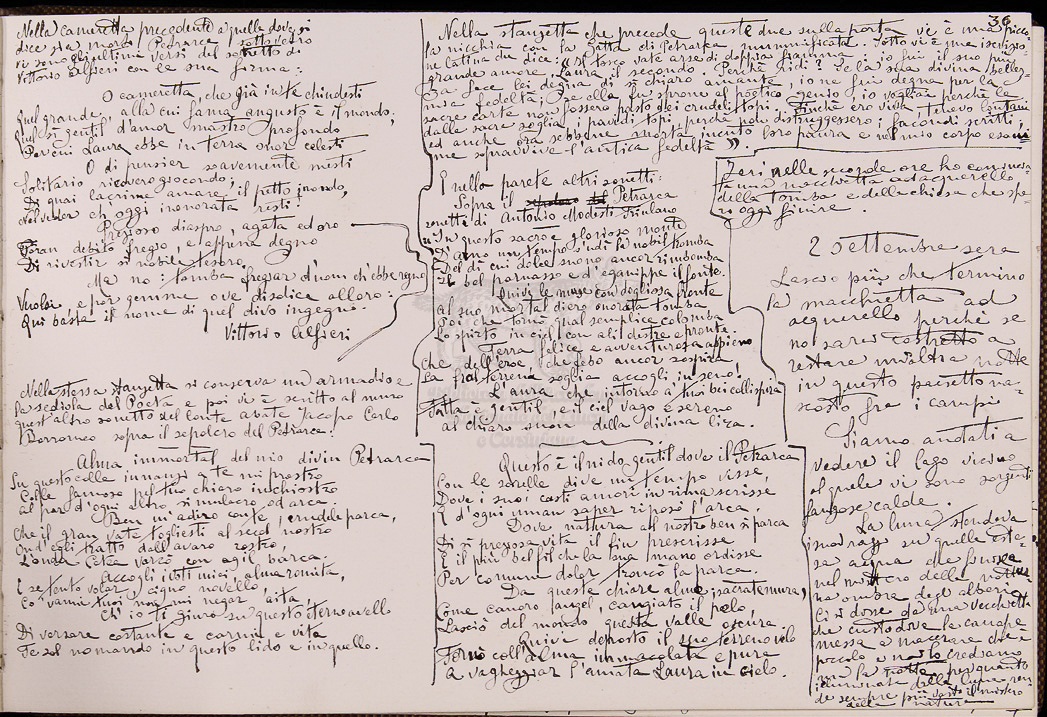 36
Nella cameretta precedente a quella dove si
dice sia morto Petrarca sotto vetro
vi sono gli ultimi versi del sonetto di
Vittorio Alfieri con la sua firma:
O cameretta, che già in te chiudesti
Quel grande, alla cui fama angusto è il mondo,
Quel sì gentil d'amor mastro profondo
Per cui Laura ebbe in terra onor celesti
O di pensier soavemente mesti
Solitario ricovero giocondo;
Di quai lacrime amare il petto inondo,
Nel veder ch'oggi inonorata resti!
Prezioso diaspro, agata ed oro
Foran debito fregio, e appena degno
Di rivestir sì nobile tesoro.
Ma no: tomba fregiar d'uom ch'ebbe regno
Vuolsi, e por gemme ove disdice alloro:
Qui basta il nome di quel divo ingegno.
Vittorio Alfieri
Nella stessa stanzetta si conserva un armadio e
la sediola del Poeta e poi vi è scritto al muro
quest'altro sonetto del conte abate Jacopo Carlo
Borromeo sopra il sepolcro del Petrarca:
Alma immortal del mio divin Petrarca
Su questo colle innanzi a te mi prostro
Colle famoso pel tuo chiaro inchiostro
Al par d'ogni altro simulacro od arca.
Ben mi adiro con te, crudele parca,
Che il gran vate togliesti al secol nostro
Ond'egli tratto dall'avaro rostro
L'onda Letea varcò con agil barca.
Accogli i voti miei, alma romita,
E se tento volar, cigno novello,
Co' vanni tuoi non mi negar aita,
Ch'io ti giuro su questo eterno avello
Di versare costante e carmi, e vita
Te sol nomando in questo lido e in quello.
Nella stanzetta che precede queste due sulla porta vi è una picco-
la nicchia con la gatta di Petrarca mummificata. Sotto vi è una iscrizio-
ne latina che dice: «Il tosco vate arse di doppia fiamma: io fui il suo più
grande amore, Laura il secondo. Perchè ridi? Se la sua divina bellez-
za fece lei degna di sì chiaro amante, io ne fui degna per la
mia fedeltà; se ella fu sprone al poetico genio, io vegliai perchè le
sacre carte non fossero pasto dei crudeli topi. Finchè ero viva, tenevo lontani
dalle sacre soglie i pavidi topi perchè non distruggessero i facondi scritti;
ed anche ora sebbene morta incuto loro paura e nel mio corpo esani-
me sopravvive l'antica fedeltà».
E nella parete altri sonetti:
Sopra il Petrarca
sonetto di Antonio Modesti friulano
«In questo sacro e glorioso monte
Di Arno un tempo s'udì la nobil tromba
Del di cui dolce suono ancor rimbomba
Il bel parnasso e d'eganippe il fonte.
Quivi le muse con dogliosa fronte
Al suo mortal diero onorata tomba
Poi che tornò qual semplice colomba
Lo spirto in ciel con ali destre e pronte.
Terra felice e avventurosa appieno
Che dell'eroe, che gebo ancor sospira
La fral terrena spoglia accogli in seno!
L'aura che intorno a' tuoi bei colli spira
Fatta è gentil, e il ciel vago e sereno
al chiaro suon della divina lira.
Questo è il nido gentil dove il Petrarca
Con le sorelle dive un tempo visse,
Dove i suoi casti amori in rima scrisse
E d'ogni uman saper ripose l'arca.
Dove natura al nostro ben sì parca
Di sì preziosa vita il fin prescrisse
E il più bel fil che la sua mano ordisse
Per comune dolor troncò la parca.
Da queste chiare alme, sacrate mura,
Come canoro augel, cangiato il pelo,
Lasciò del mondo questa valle oscura.
Quivi deposto il suo terreno velo
Tornò coll'alma immacolata e pura
A vagheggiar l'amata Laura in cielo.
Ieri nelle seconde ore ho cominciato
una macchietta ad acquerello
della tomba e della chiesa che spe-
ro oggi finire.
2 Settembre sera
Lascio più che termino
la macchietta ad
acquerello perchè se
no sarei costretto a
restare un'altra notte
in questo paesetto na-
scosto fra i campi.
Siamo andati a
vedere il lago vicino
al quale vi sono sorgenti
fangose calde.
La luna stendeva
i suoi raggi su quella este-
sa acqua che
nel mistero della notte
na ombra degli alberi.
Ci si disse da una vecchietta
che custodiva le canape
messe a macerare che è
piccolo e noi lo credevamo
illuminate della luna ren-
de sempre più vasto il mistero
della natura